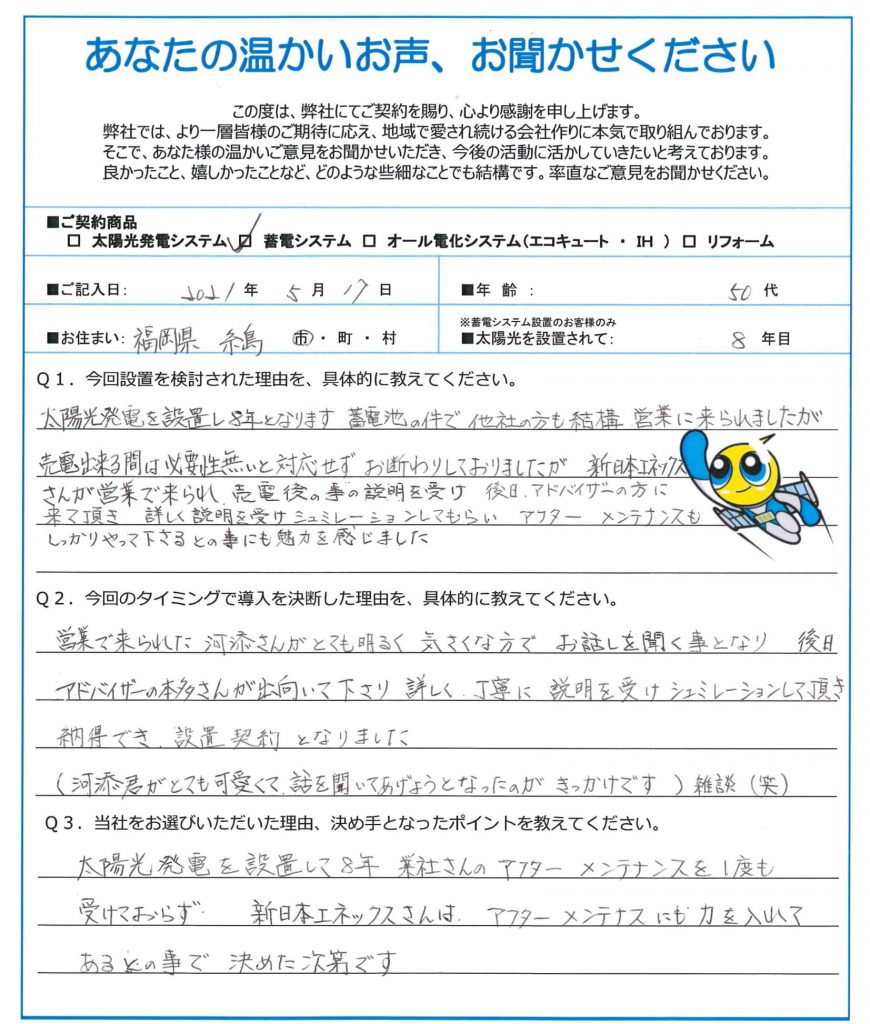 あなたの温かいお声、お聞かせください
この度は、弊社にてご契約を賜り、心より感謝を申し上げます。
弊社では、より一層皆様のご期待に応え、地域で愛され続ける会社作りに本気で取り組んでおります。
そこで、あなた様の温かいご意見をお聞かせいただき、今後の活動に活かしていきたいと考えております。
良かったこと、嬉しかったことなど、どのような些細なことでも結構です。率直なご意見をお聞かせください。
■ご契約商品
□ 太陽光発電システム ☑ 蓄電システム □ オール電化システム(エコキュート ・ IH ) □ リフォーム
■ご記入日: 2021 年 5 月 17 日
■年 齢 : 50 代
■お住まい: 福岡県 糸島 ㊞市・町・村
※蓄電システム設置のお客様のみ
■太陽光を設置されて: 8 年目
Q1．今回設置を検討された理由を、具体的に教えてください。
太陽光発電を設置し8年となります 蓄電池の件で 他社の方も結構 営業に来られましたが
売電出来る間は必要性無いと対応せず お断わりしておりましたが 新日本エネックス
さんが営業で来られ 売電後の事の説明を受け 後日、アドバイザーの方に
来て頂き 詳しく説明を受けシュミレーションしてもらい アフター メンテナンスも
しっかりやって下さるとの事にも魅力を感じました
Q2．今回のタイミングで導入を決断した理由を、具体的に教えてください。
営業で来られた 河添さんがとても明るく 気さくな方で お話しを聞く事となり 後日
アドバイザーの本多さんが出向いて下さり 詳しく、丁寧に 説明を受けシュミレーションして頂き
納得でき、設置契約 となりました
(河添君がとても可愛くて、話を聞いてあげようとなったのが きっかけです ) 雑談 (笑)
Q3．当社をお選びいただいた理由、決め手となったポイントを教えてください。
太陽光発電を設置して8年 業社さんのアフター メンテナンスを1度も
受けておらず 新日本エネックスさんは、アフターメンテナスにも力を入れて
あるとの事で 決めた次第です